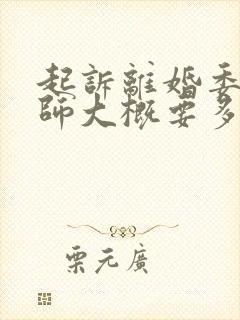 起訴離婚委
師大概要多
栗元廣